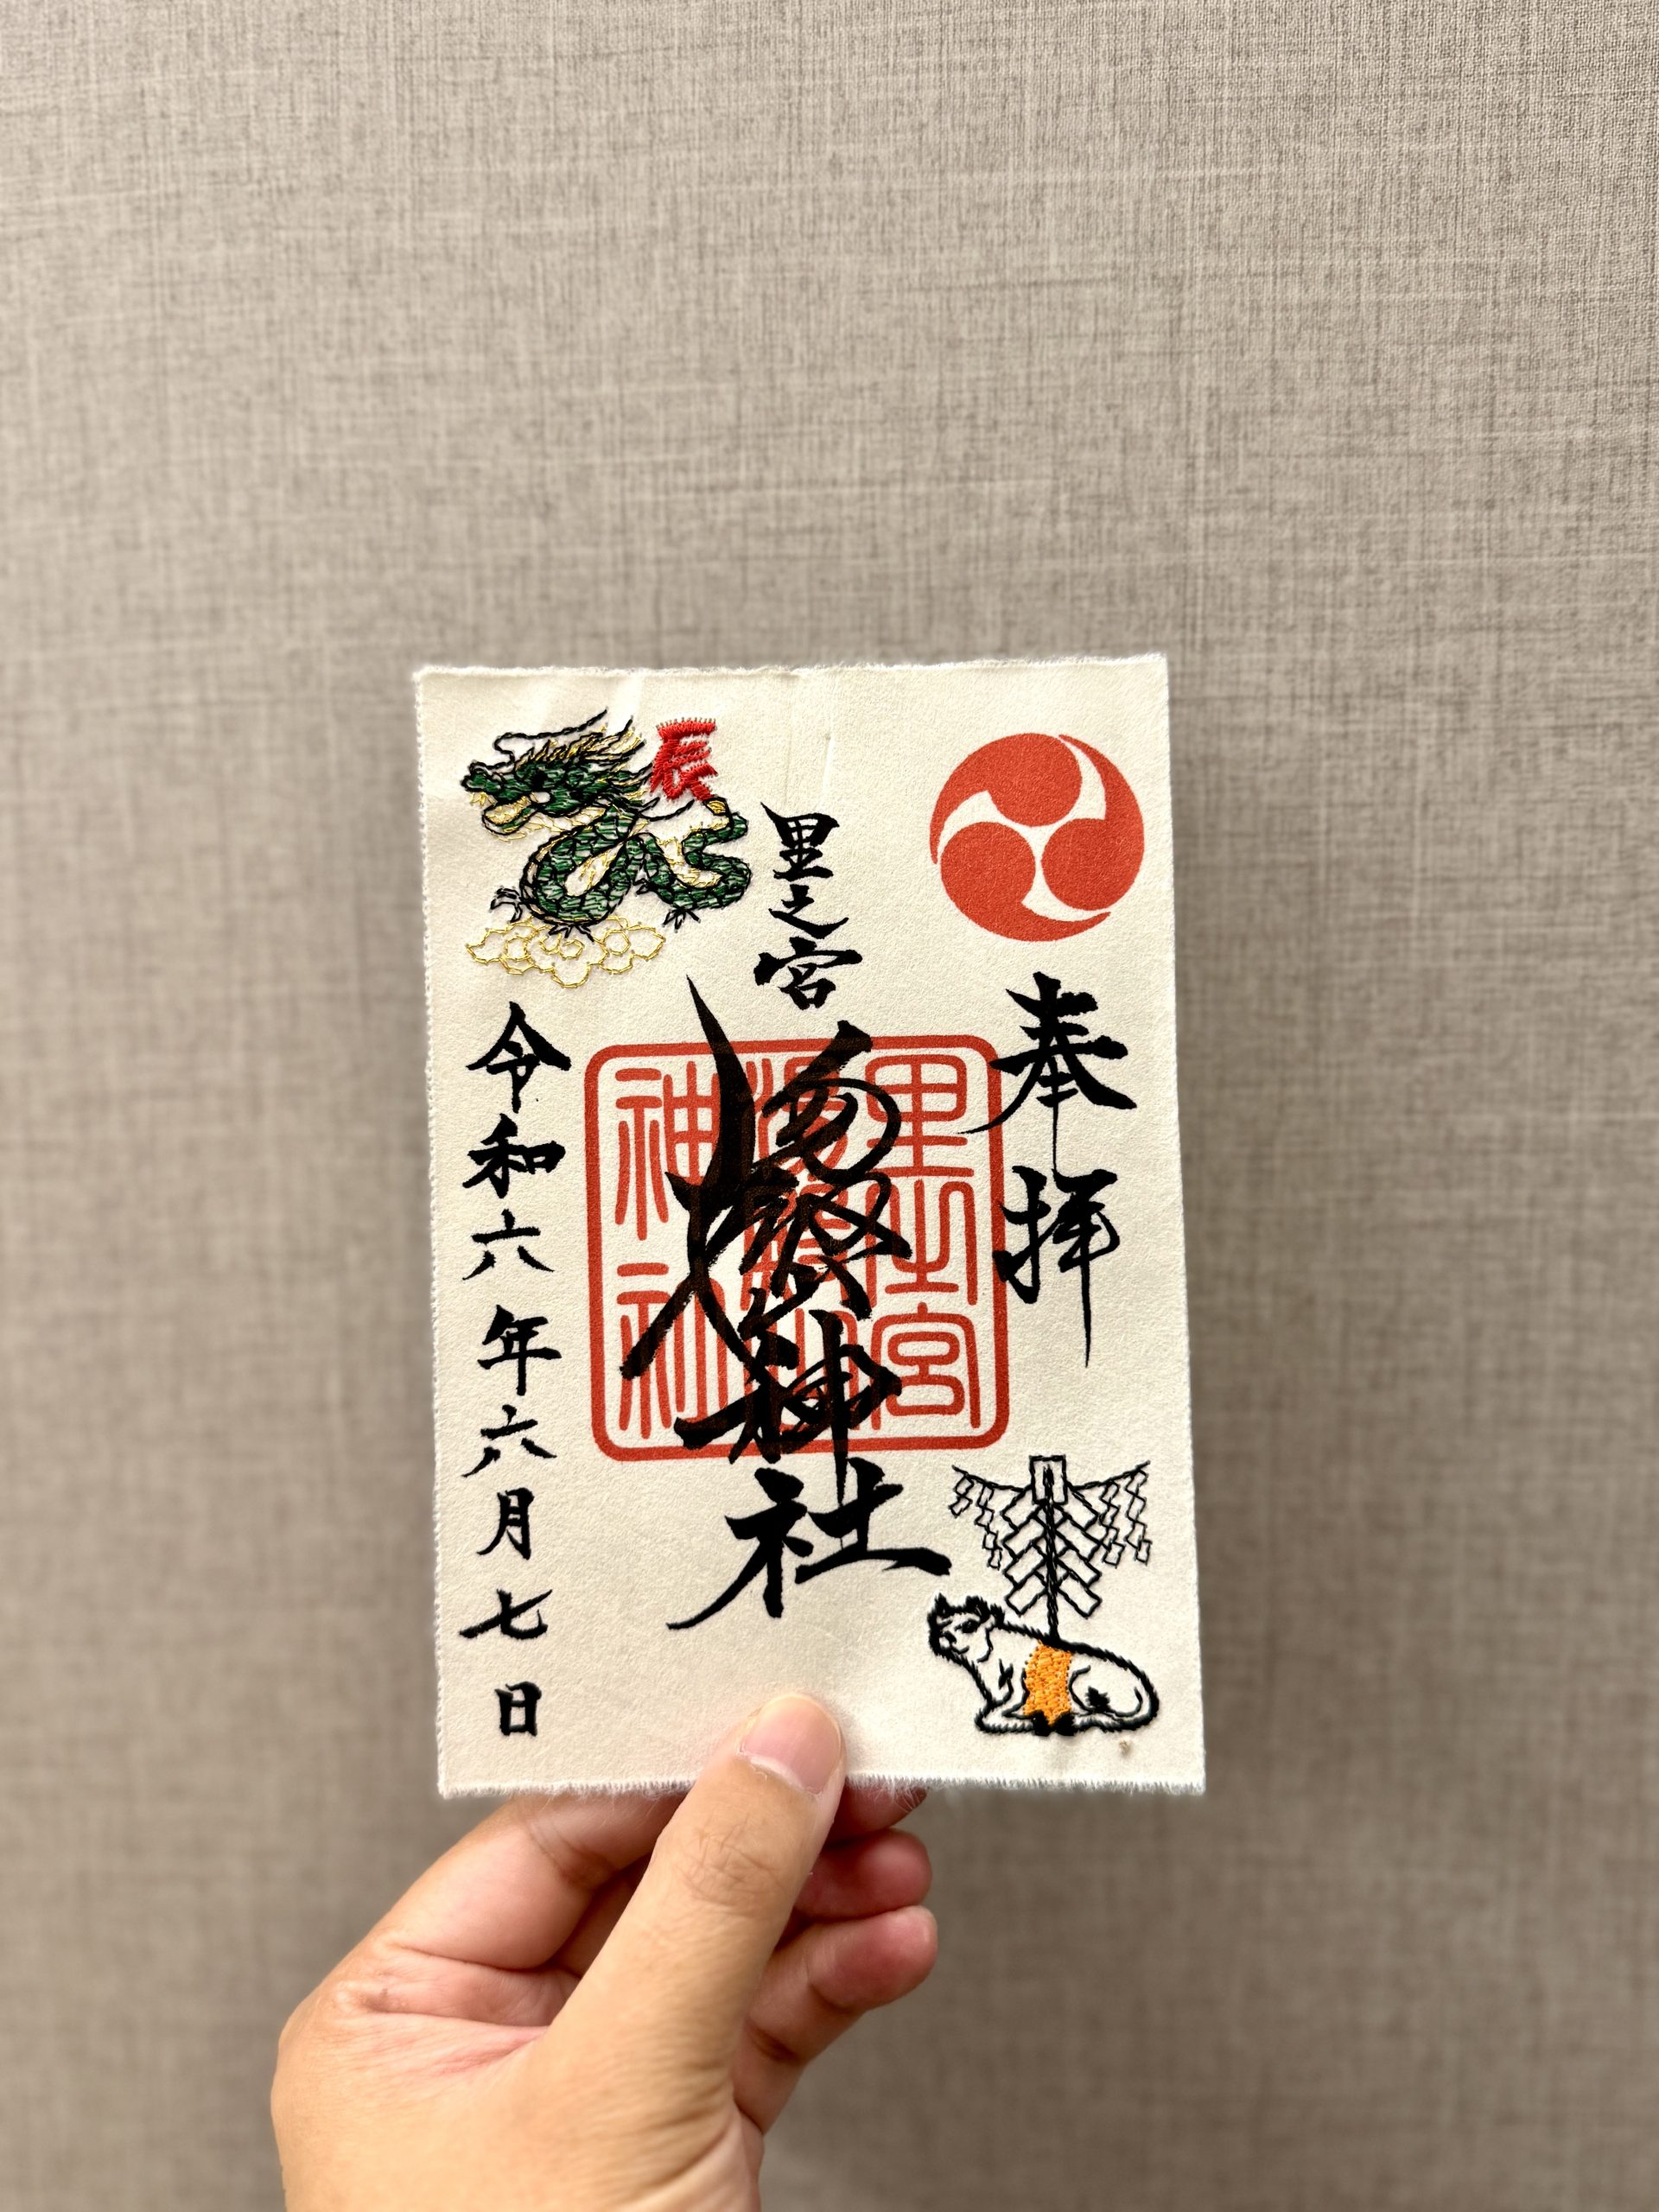 奉拝
里之宮
湯殿山神社
里之宮
湯殿山
神社
辰
令和六年六月七日